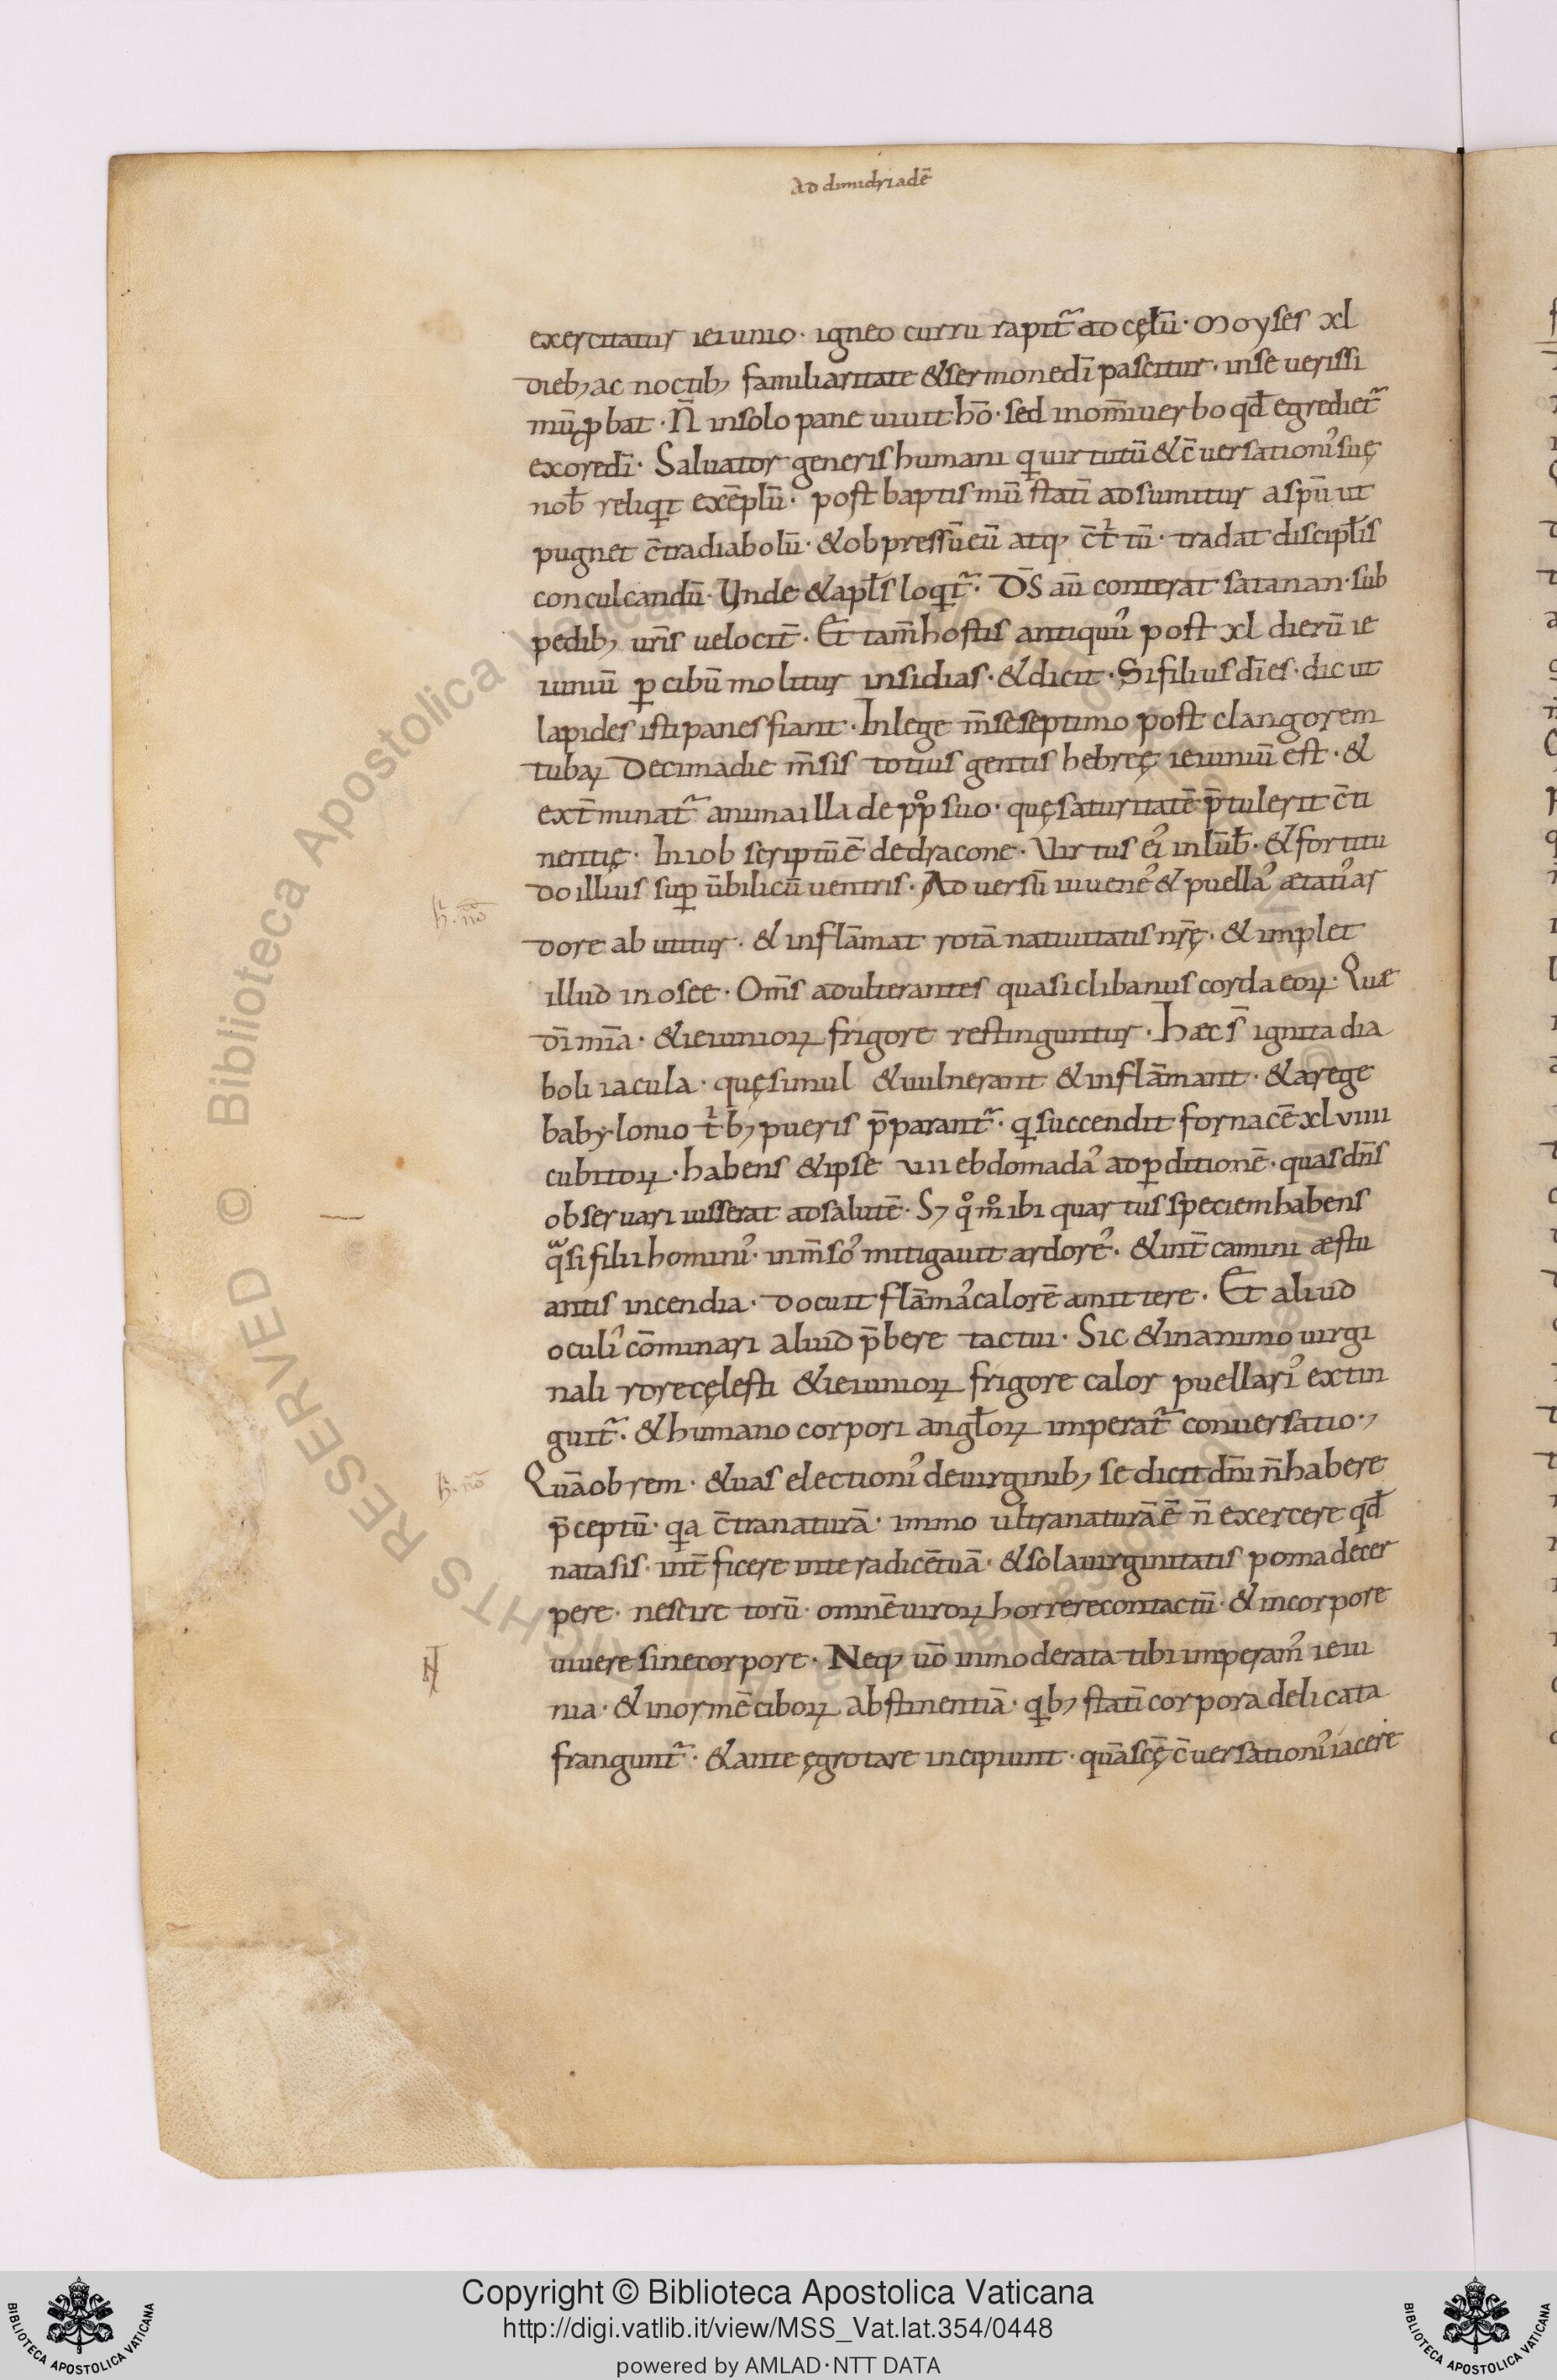 Ad dimidriadē
exercitatur ieiunio · igneo curru rapit᷑ ad cęlū · Moyses xl
dieb; ac noctib; familiaritate & sermone dī pascitur · in se uerissi
mū ꝓbat · N̄ in solo pane uiuit hō · sed in om̄i uerbo qđ egrediet᷑
ex ore dī · Saluator generis humani q uirtutū & c̄uersationis suę
nob̄ reliqit exēplū · post baptismū statī adsumitur a spū ut
pugnet c̄tra diabolū · & obpressū eū atq; c̄tⁱtū · tradat discipłis
conculcandū · Unde & apłs loqt᷑ · D̄S aū conterat satanan · sub
pedib; ur̄is uelocit̄ · Et tam̄ hostis antiquus post xl dierū ie
iuniū ꝑ cibū molitur insidias · & dicit · Si filius dī es · dic ut
lapides isti panes fiant · In lege m̄se septimo post clangorem
tubaꝝ decima die m̄sis totius gentis hebreę ieiuniū est · &
ext̄minat᷑ anima illa de pp̊ suo · quę saturitatē p̄tulerit c̄ti
nentię · In iob scriptū ē de dracone · Virtus ei' in lūb̄ · & fortitu
do illius suꝑ ūbilicū uentris · Aduersū iuuene' & puella' ætati' ar
dore abutitur · & inflāmat rotā natiuitatis nr̄ę · & implet
illud in osee · Om̄s adulterantes quasi clibanus corda eoꝝ · Quæ
dī mīa · & ieiunioꝝ frigore restinguntur · Hæc s̄ ignita dia
boli iacula · quę simul & uulnerant & inflāmant · & a rege
babylonio tⁱb; pueris p̄parant᷑ · q succendit fornacē xlviiii
cubitoꝝ · habens & ipse vii ebdomada' ad ꝑditionē · quas dn̄s
obseruari iusserat ad salutē · S; qͦmͦ ibi quartus speciem habens
qᵃsi filii homini' · inm̄so' mitigauit ardore' · & int̄ camini æstu
antis incendia · docuit flāma' calorē amittere · Et aliud
oculi' cōminari aliud p̄bere tactui · Sic & in animo uirgi
nali rore cęlesti & ieiunioꝝ frigore calor puellari' extin
guit᷑ · & humano corpori angłoꝝ imperat᷑ conuersatio ·;
h. nō
Quāobrem · & uas electioni' de uirginib; se dicit dn̄i n̄ habere
p̄ceptū · qa c̄tra naturā · immo ultra naturā ē n̄ exercere qđ
nata sis · int̄ficere in te radicē tuā · & sola uirginitatis poma decer
pere · nescire torū · omnē uiroꝝ horrere contactū · & in corpore
uiuere sine corpore · Neq; uō inmoderata tibi imperam' ieiu
nia · & inormē ciboꝝ abstinentiā · qb; statī corpora delicata
frangunt᷑ · & ante ęgrotare incipiunt · quā scę̄ c̄uersationi' iacere
Copyright © Biblioteca Apostolica Vaticana
http://digi.vatlib.it/view/MSS_Vat.lat.354/0448
powered by AMLAD·NTT DATA
BIBLIOTECA APOSTOLICA VATICANA
BIBLIOTECA APOSTOLICA VATICANA